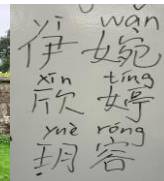 yī wǎn
伊 婉
xīn tíng
欣 婷
yuè róng
玥 容